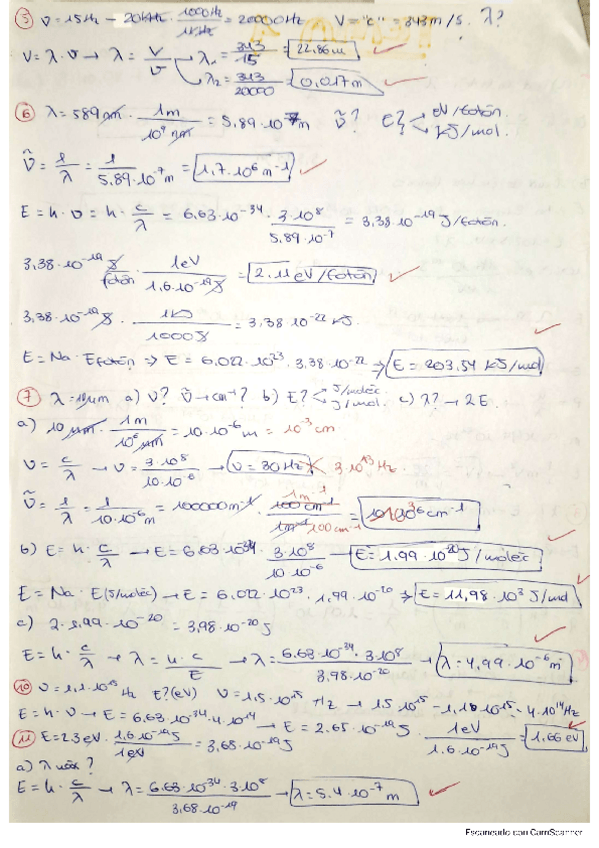 5) ν=15Hz - 20kHz · 1000Hz/1kHz = 20000Hz V="c"=343m/s. λ?
V=λ·ν → λ = V/ν → λ₁ = 343/15 = 22,86m
λ₂ = 343/20000 = 0,017m
6) λ=589nm · 1m/10⁹nm = 5,89·10⁻⁷m ν̃? E? eV/fotón. KJ/mol.
ν̃ = 1/λ = 1/5,89·10⁻⁷m = 1,7·10⁶m⁻¹
E = h·ν = h·c/λ = 6,63·10⁻³⁴ · 3·10⁸/5,89·10⁻⁷ = 3,38·10⁻¹⁹J/fotón.
3,38·10⁻¹⁹ J/fotón · 1eV/1,6·10⁻¹⁹J = 2,11eV/fotón
3,38·10⁻¹⁹J · 1KJ/1000J = 3,38·10⁻²² KJ.
E = Na·Efotón ⇒ E = 6,022·10²³ · 3,38·10⁻²² ⇒ E = 203,54 KJ/mol
7) a) ν? ν̃→cm⁻¹? b) E? J/moléc. J/mol. c) λ? → 2E.
a) 10μm · 1m/10⁶μm = 10·10⁻⁶m = 10⁻³cm
ν = c/λ → ν = 3·10⁸/10·10⁻⁶ → ν=30Hz 3·10¹³Hz.
ν̃ = 1/λ = 1/10·10⁻⁶m = 100000m⁻¹ · 100cm⁻¹/1m⁻¹ 1m⁻¹/100cm⁻¹ = cm⁻¹
b) E=h·c/λ → E=6,63·10⁻³⁴ · 3·10⁸/10·10⁻⁶ → E=1,99·10⁻²⁰J/moléc
E = Na·E(J/moléc) → E = 6,022·10²³ · 1,99·10⁻²⁰ ⇒ E=11,98·10³J/mol
c) 2·1,99·10⁻²⁰ = 3,98·10⁻²⁰J
E=h·c/λ → λ = h·c/E → λ = 6,63·10⁻³⁴·3·10⁸/3,98·10⁻²⁰ → λ=4,99·10⁻⁶m
10) ν=1,1·10¹⁵Hz E?(eV) ν=1,5·10¹⁵ Hz → 1,5·10¹⁵-1,1·10¹⁵=4·10¹⁴Hz
E=h·ν → E=6,63·10⁻³⁴·4·10¹⁴ → E=2,65·10⁻¹⁹J · 1eV/1,6·10⁻¹⁹J = 1,66eV
11) E=2,3eV · 1,6·10⁻¹⁹J/1eV = 3,68·10⁻¹⁹J
a) λ máx?
E=h·c/λ → λ = 6,63·10⁻³⁴·3·10⁸/3,68·10⁻¹⁹ → λ=5,4·10⁻⁷m
Escaneado con CamScanner